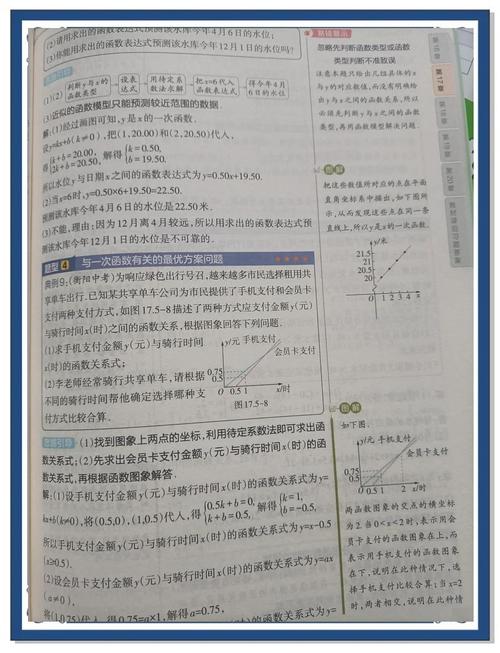 (2)请用求出的函数表达式预测该水库今年4月6日的水位;
(3)你能用求出的函数表达式预测该水库今年12月1日的水位吗?
(1)(2) 判断y与x的函数类型 设表达式 用待定系数法求解 把x=6代入函数表达式 得今年4月6日的水位
(3)近似的函数模型只能预测较近范围的数据.
解:(1)经过画图可知,y是x的一次函数.
设y=kx+b(k≠0),把(1,20.00)和(2,20.50)代入,
得{k+b=20.00, 2k+b=20.50, 解得{k=0.50, b=19.50.
所以水位y与日期x之间的函数表达式为y=0.50x+19.50.
(2)当x=6时,y=0.50×6+19.50=22.50.
预测该水库今年4月6日的水位是22.50米.
(3)不能,理由:因为12月离4月较远,所以用求出的函数表达式预
测该水库今年12月1日的水位是不可靠的.
题型4 与一次函数有关的最优方案问题
典例9:(衡阳中考)为响应绿色出行号召,越来越多市民选择租用共
享单车出行.已知某共享单车公司为市民提供了手机支付和会员卡
支付两种支付方式,如图17.5-8描述了两种方式应支付金额y(元)
与骑行时间x(时)之间的函数关系,根据图象回答下列问题.
(1)求手机支付金额y(元)与骑行时间
x(时)的函数关系式;
(2)李老师经常骑行共享单车,请根据
不同的骑行时间帮他确定选择哪种支
付方式比较合算.
y/元 手机支付
会员卡支付
0.75
0.5
O 0.5 1 x/时
图17.5-8
思路引导 (1)找到图象上两点的坐标,利用待定系数法即可求出函
数关系式;(2)先求出会员卡支付金额y(元)与骑行时间x(时)的函
数关系式,再根据函数图象解答.
解:(1)设手机支付金额y(元)与骑行时间x(时)的函数关系式为y=
kx+b(k≠0),将(0.5,0),(1,0.5)代入,得{0.5k+b=0, k+b=0.5, 解得{k=1, b=-0.5,
所以手机支付金额y(元)与骑行时间x(时)的函数关系式为y=x-0.5
(x≥0.5).
(2)设会员卡支付金额y(元)与骑行时间x(时)的函数关系式为y=ax
(a≠0),
将(1,0.75)代入,得0.75=a×1,解得a=0.75,
易错警示
忽略先判断函数类型或函数
类型判断不准致误
注意本题只给出几组具体的x
与y的对应数值,而没有明确给
出y与x之间的函数关系,所以
必须先判断y与x之间的函数
类型,再用函数模型解决问题.
图解
把这些数值所对应的点在平面
直角坐标系中描出,如下图所
示,从而发现这些点在同一条
直线上,所以y是x的一次函数.
y/米
21.5
21
20.5
20
O 1 2 3 4 x
图解
如下图.
y/元 手机支付
会员卡支付
0.75
0.5
O 0.5 1 2 x/时
两函数图象的交点的横坐标
为2.当0<x<2时,表示用会
员卡支付的函数图象在上,而
表示用手机支付的函数图象
在下,说明在此种情况下,选
择手机支付比较合算;当x=2
时,两者相交,说明在此种情
第16章
第17章
第18章
第19章
第20章